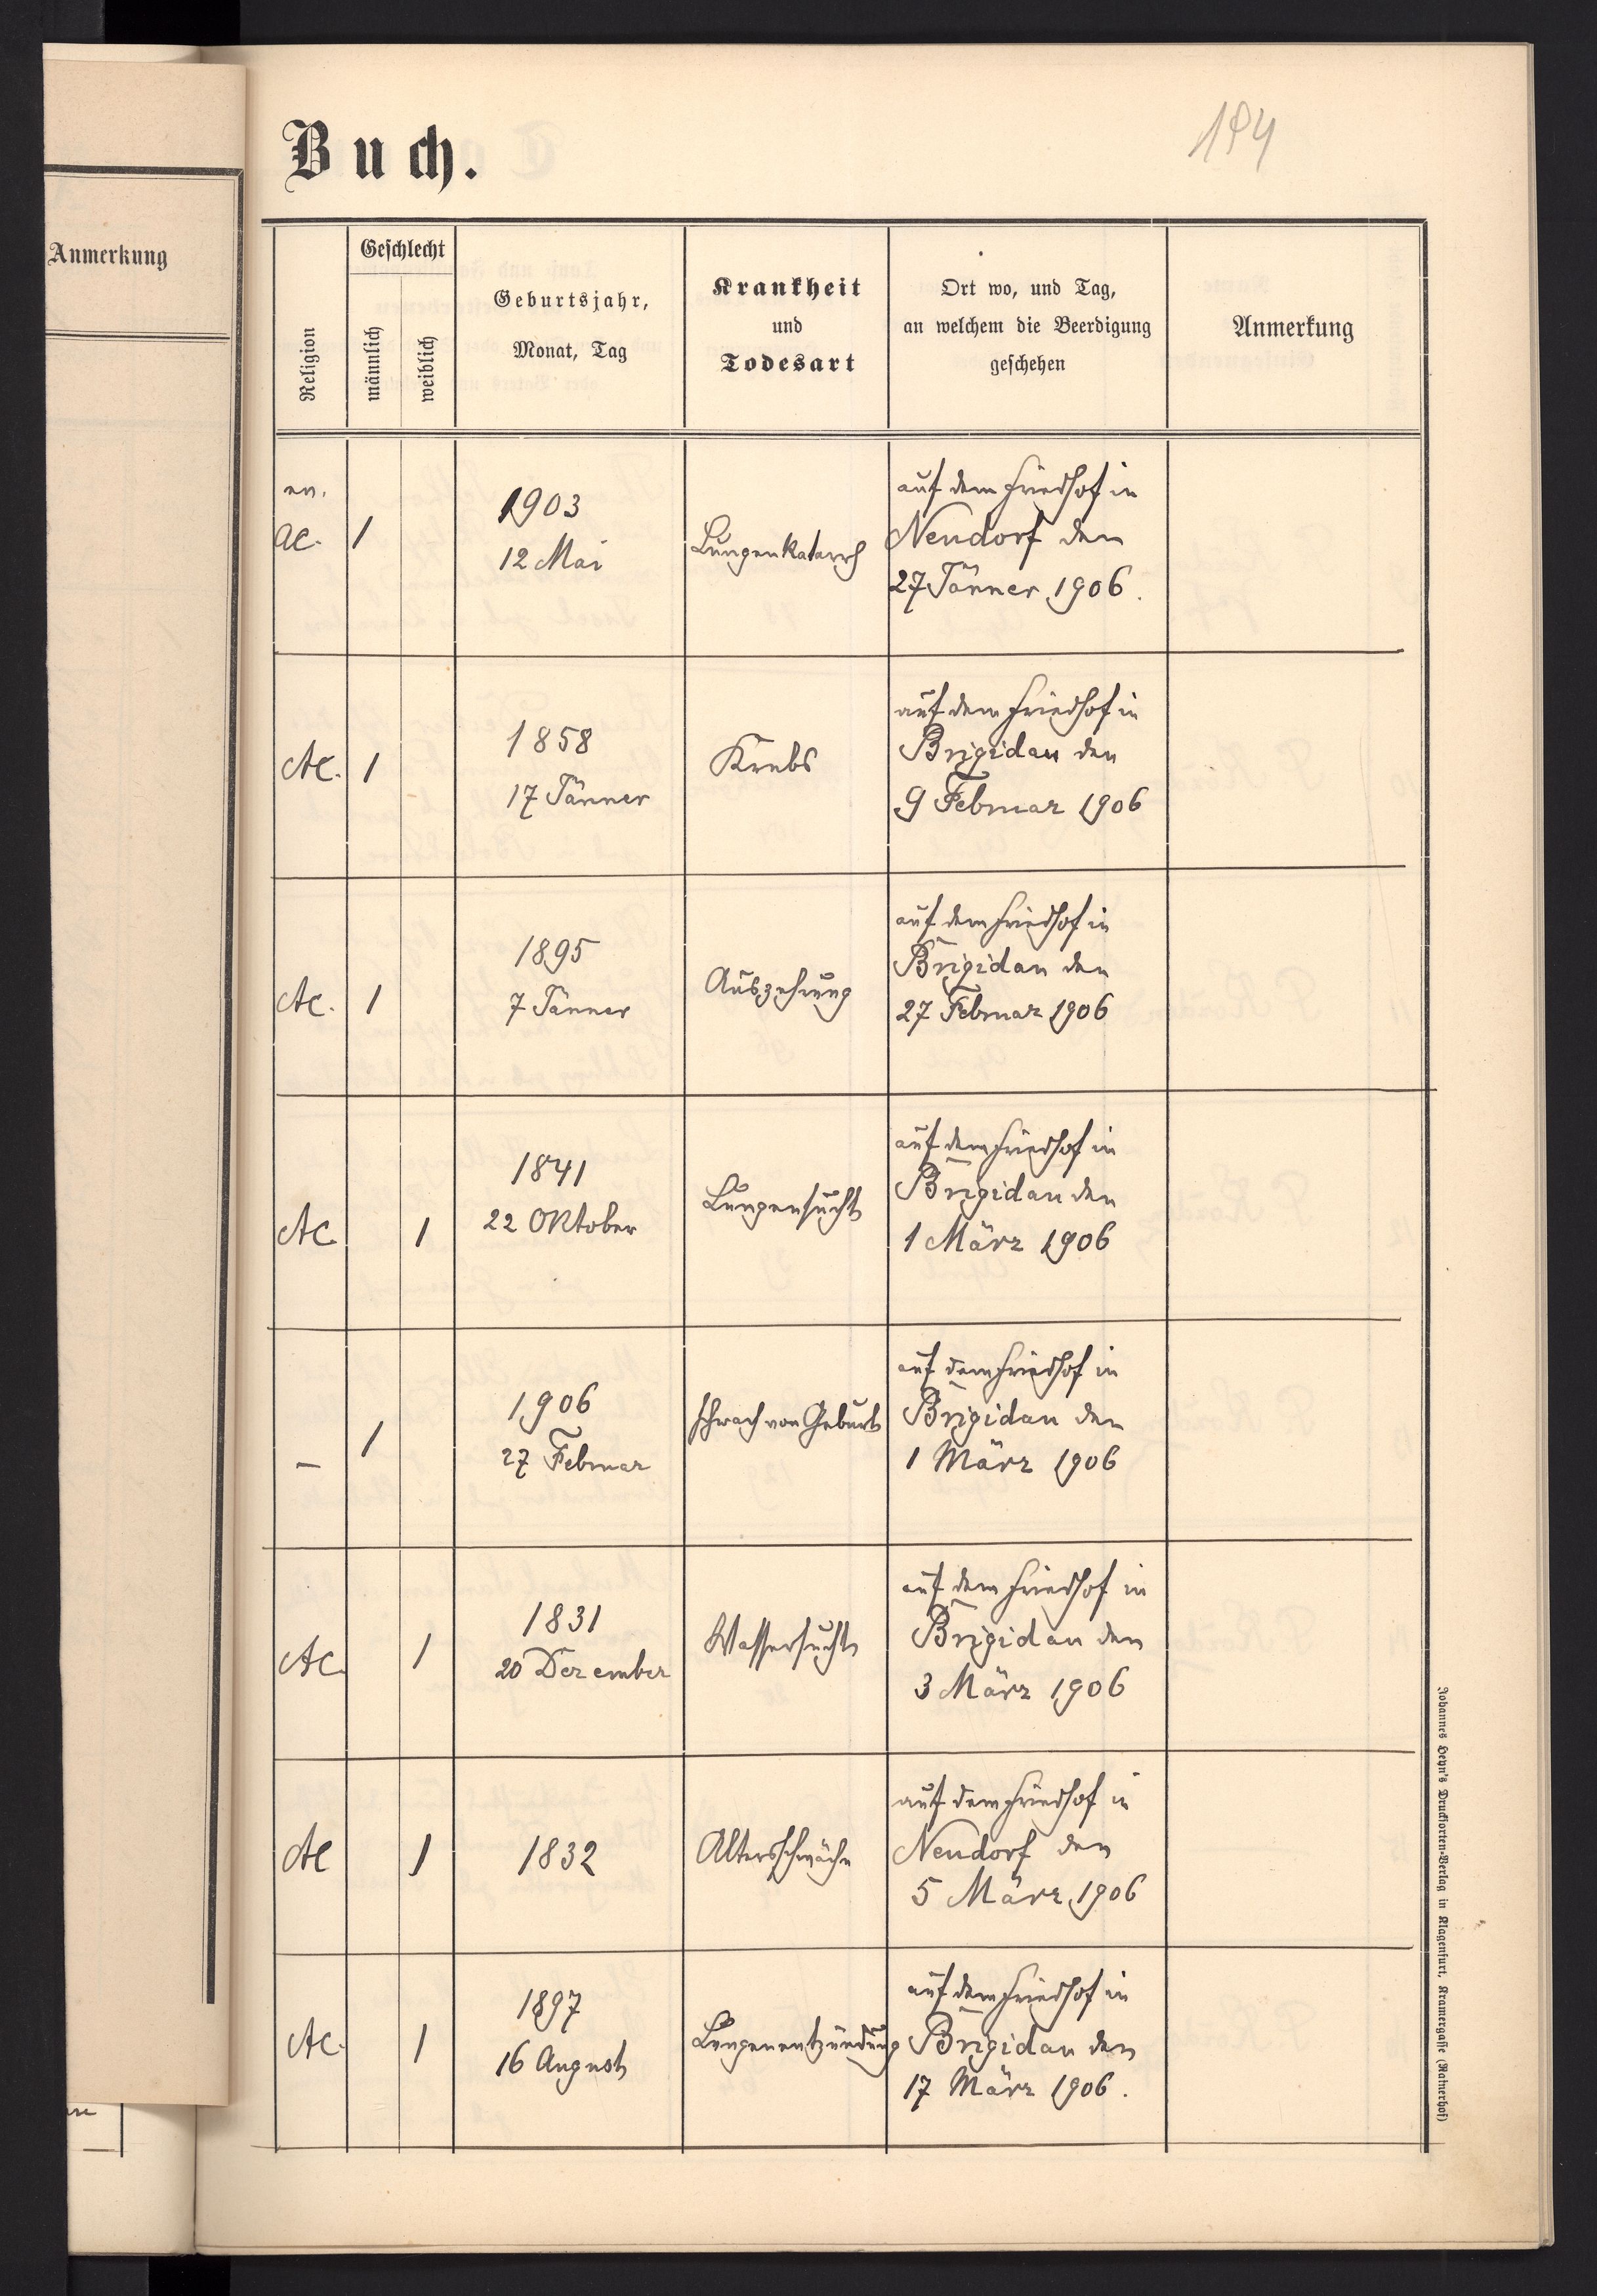 Anmerkung
Buch.
184
Religion
Geschlecht
männlich
weiblich
Geburtsjahr,
Monat, Tag
Krankheit
und
Todesart
Ort wo, und Tag,
an welchem die Beerdigung
geschehen
Anmerkung
ev.
AC.
1
1903
12 Mai
Lungenkatarrh
auf dem Friedhof in
Neudorf den
27 Jänner 1906.
AC.
1
1858
17 Jänner
Krebs
auf dem Friedhof in
Brigidau den
9 Februar 1906
AC.
1
1895
7 Jänner
Auszehrung
auf dem Friedhof in
Brigidau den
27 Februar 1906
AC
1
1841
22 Oktober
Lungensucht
auf dem Friedhof in
Brigidau den
1 März 1906
–
1
1906
27 Februar
schwach von Geburt
auf dem Friedhof in
Brigidau den
1 März 1906
AC
1
1831
20 Dezember
Wassersucht
auf dem Friedhof in
Brigidau den
3 März 1906
AC
1
1832
Altersschwäche
auf dem Friedhof in
Neudorf den
5 März 1906
AC.
1
1897
16 August
Lungenentzündung
auf dem Friedhof in
Brigidau den
17 März 1906.
Johannes Heyn's Drucksorten-Verlag in Klagenfurt, Kramergasse (Rainerhof)